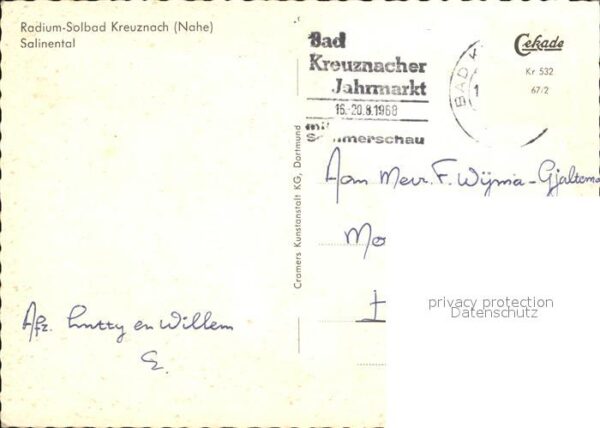 Radium-Solbad Kreuznach (Nahe)
Salinental
Bad
Kreuznacher
Jahrmarkt
16.-20.8.1968
mit
S mmerschau
BAD K
1
Cekade
Kr 532
67/2
Cramers Kunstanstalt KG, Dortmund
Aan Mevr. F. Wijma-Gjaltema
Mo
privacy protection
Datenschutz
Afz. en Willem